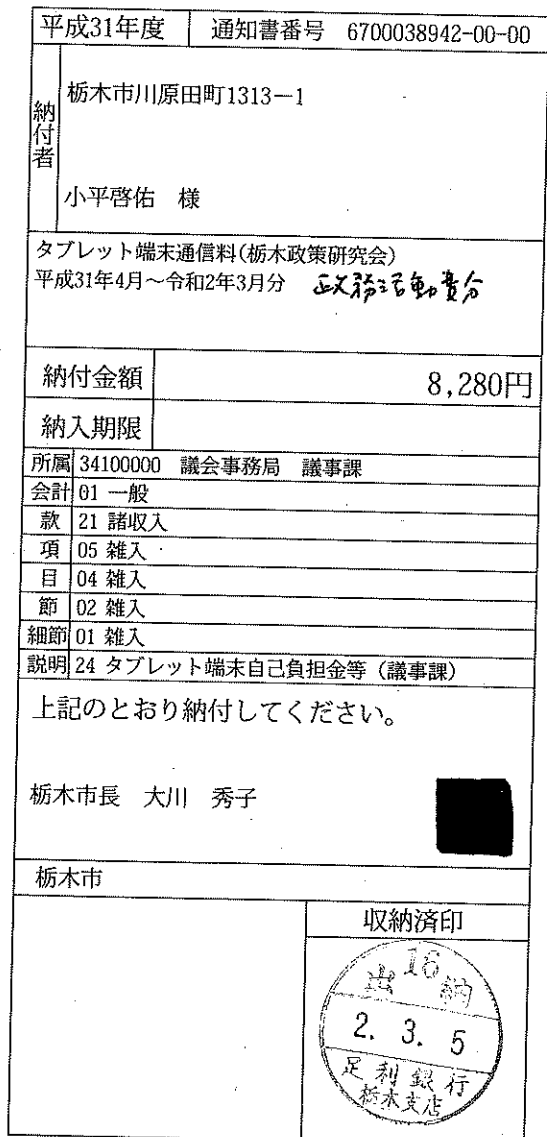 平成31年度 通知書番号 6700038942-00-00
納付者
栃木市川原田町1313ー1
小平啓佑 様
タブレット端末通信料(栃木政策研究会)
平成31年4月～令和2年3月分 政務活動費分
納付金額 8,280円
納入期限
所属 34100000 議会事務局 議事課
会計 01 一般
款 21 諸収入
項 05 雑入
目 04 雑入
節 02 雑入
細節 01 雑入
説明 24 タブレット端末自己負担金等（議事課）
上記のとおり納付してください。
栃木市長 大川 秀子
栃木市
収納済印
16
出納
2. 3. 5
足利銀行
栃木支店